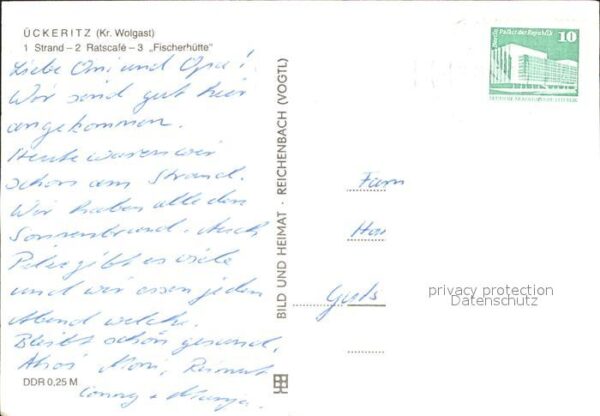 ÜCKERITZ (Kr. Wolgast)
1 Strand – 2 Ratscafé – 3 „Fischerhütte"
Liebe Omi und Opa!
Wir sind gut hier
angekommen.
Heute waren wir
schon am Strand.
Wir haben alle den
Sonnenbrand. Auch
Pilze gibt es viele
und wir essen jeden
Abend welche.
Bleibt schön gesund,
Ahoi Moni,
Conny +
DDR 0,25 M
BILD UND HEIMAT · REICHENBACH (VOGTL)
Berlin Palast der Republik
10
DEUTSCHE DEMOKRATISCHE REPUBLIK
Fam
Ha
privacy protection
Datenschutz